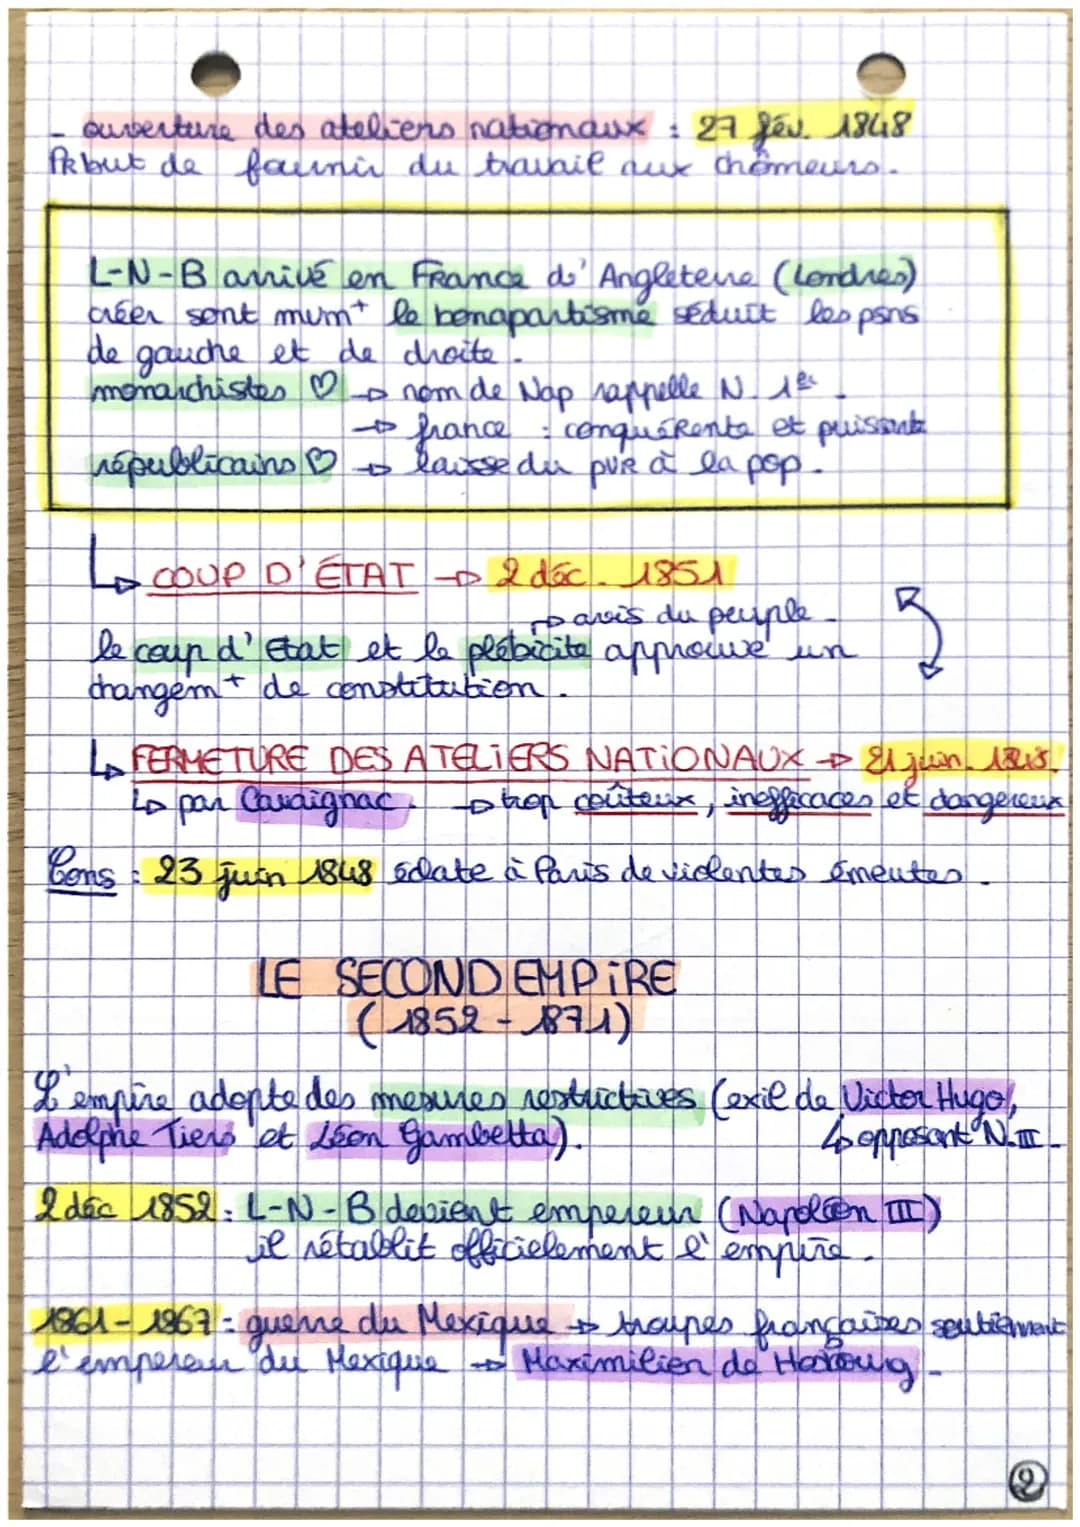 - ouverture des ateliers nationaux : 27 fév. 1848
but de fournir du travail aux chômeurs.
L-N-B arrivé en France d'Angleterre (Londres)
créer sont mvm+ le bonapartisme séduit les psns
de gauche et de droite.
monarchistes ♡ → nom de Nap rappelle N. 1er.
→ france : conquérente et puissante
républicains ♡ → laisse du pvr à la pop.
↳ COUP D'ÉTAT → 2 déc. 1851
→ avis du peuple.
le coup d'Etat et le plébicite approuve un
changem+ de constitution.
↳ FERMETURE DES ATELIERS NATIONAUX → 21 juin. 1848.
↳ par Cavaignac. → trop coûteux, inefficaces et dangereux
Cons : 23 juin 1848 éclate à Paris de violentes émeutes.
LE SECOND EMPIRE
(1852 - 1871)
L'empire adopte des mesures restrictives (exil de Victor Hugo,
Adolphe Tiers et Léon Gambetta).
↳ opposant N.III.
2 déc 1852 : L-N-B devient empereur (Napoléon III)
il rétablit officielement l'empire.
1861 - 1867 : guerre du Mexique → troupes françaises soutiennent
l'empereur du Mexique → Maximilien de
2